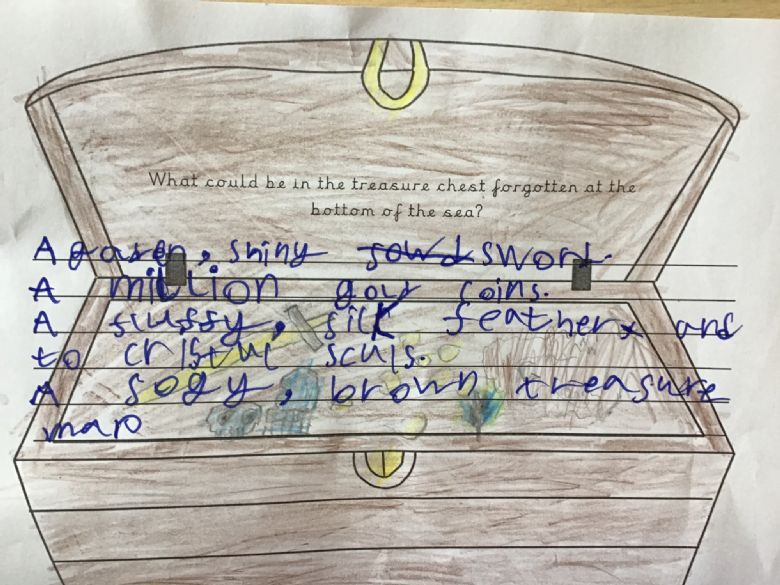 What could be in the treasure chest forgotten at the
bottom of the sea?
A , shiny swort.
A million gowr coins.
A slussy, silk feather and
to cristul sculs.
A sogy, brown treasure
map